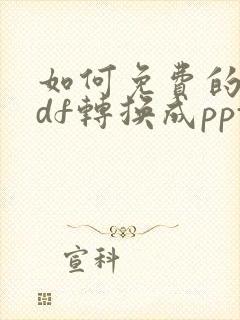 如何免費的
df轉換成pp
宣科